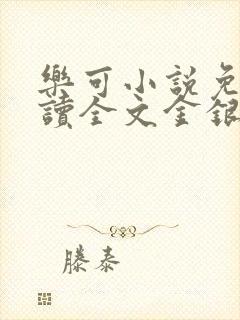 樂可小說免
讀全文金銀
滕泰